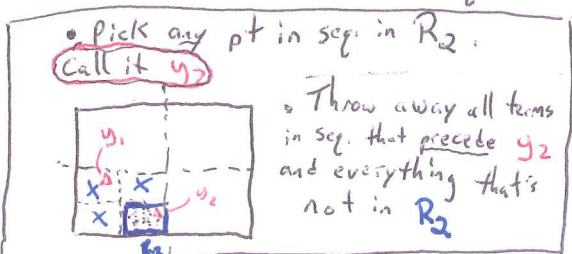 • Pick any pt in seq. in R₂.
Call it y₂
• Throw away all terms
in seq. that precede y₂
and everything that's
not in R₂
y₁
x x
x y₂
R₂